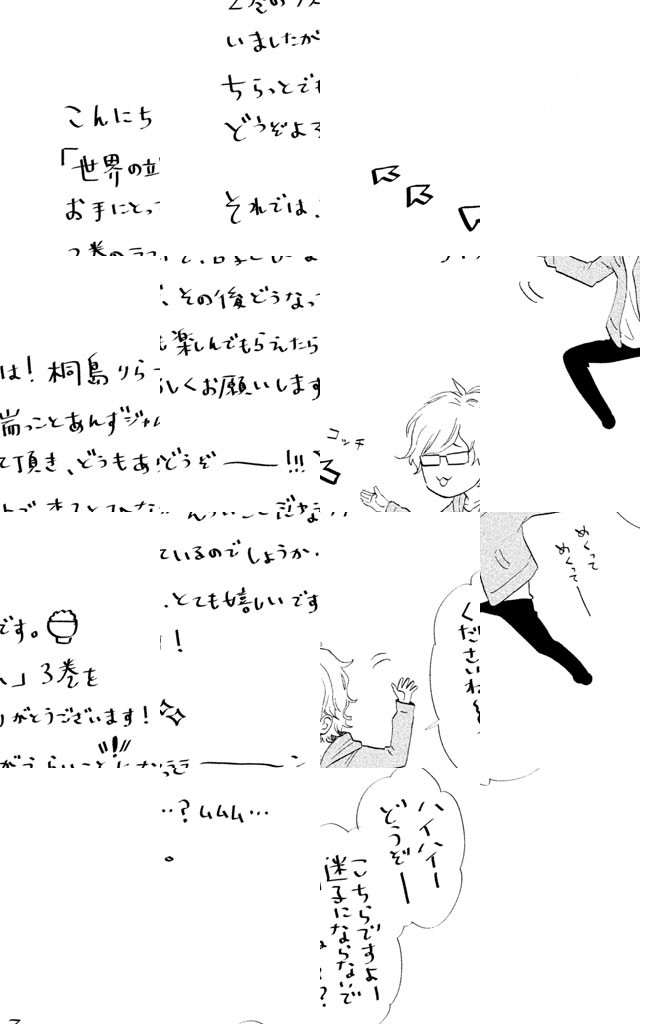 こんにち
「世界の
お手にとっ
いましたが
ちらっとでも
どうぞよろ
それでは、
は！桐島りら
端っことあんずジャム
て頂き、どうもあ
、その後どうなっ
も楽しんでもらえたら
しくお願いします
どうぞ——!!!
コッチ
です。
」3巻を
りがとうございます！
ているのでしょうか
、とても嬉しいです
！
めくって
めくってー
くださいね
…？ムムム…
。
ハイハイー
どうぞー
こちらですよー
迷子にならないで